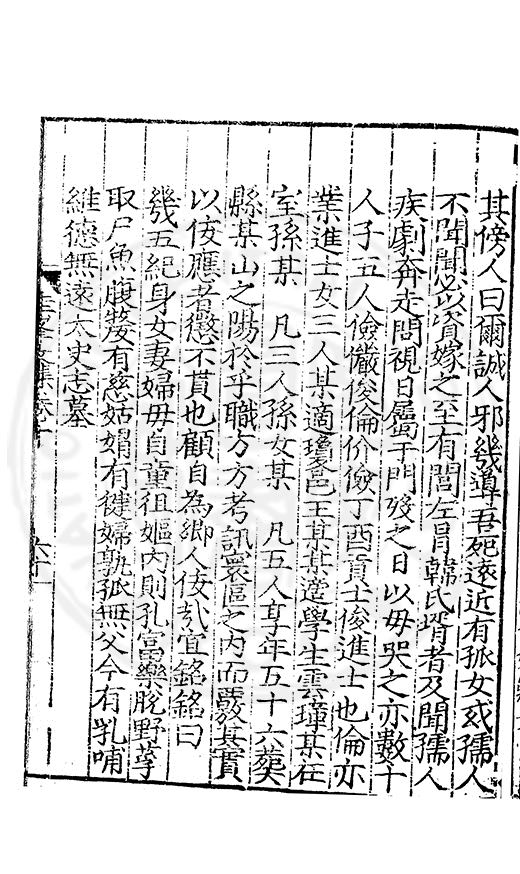 其傍人曰爾誠人邪幾導吾死遠近有孤女或孺人
不聞聞必以資嫁之至有閭左冒韓氏胥者及聞孺人
疾劇奔走問視日鐫于門歿之日以毋哭之亦數十
人子五人儉儼俊倫价儉丁酉貢士俊進士也倫亦
業進士女三人某適瓊邑王某某蓬學生雲璋某在
室孫某 凡三人孫女某 凡五人享年五十六葬
縣某山之陽於乎職方方考訊寰區之内而覈其實
以俊應者懲不貰也顧自為鄉人俊哉宜銘銘曰
幾五紀身女妻婦毋自童徂嫗內則孔富藥脫野莩
取尸魚腹嫠有慈姑媦有健婦孰孤無父今有乳哺
維德無遠太史志墓
圭峰文集卷十 六十一